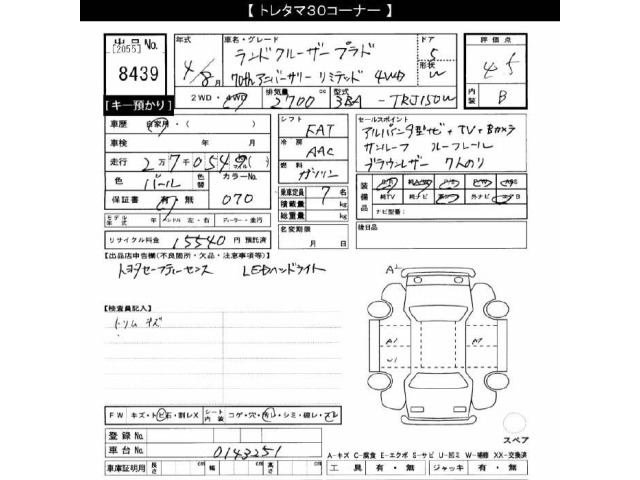 【 トレタマ30コーナー 】
出品No.
[2055]
8439
[キー預かり]
年式
4/8月
車名・グレード
ランドクルーザープラド
70thアニバーサリー リミテッド 4WD
ドア
5
形状
W
評価点
4.5
内装
B
2WD・4WD
排気量
2700
cc
型式
3BA-TRJ150W
車歴
自家用・( )
車検 年 月
走行 2万7千054 マイル( )
色 パール 色替 カラーNo. 070
保証書 有・無 070
モデル年式 年 ハンドル 左・右 ディーラー・並行
リサイクル料金 15540 円 預託済
シフト
FAT
冷房
AAC
燃料
ガソリン
乗車定員 7 名
積載量 kg
総重量 kg
名変期限
月 日
セールスポイント
アルパイン9型ナビ+TV+Bカメラ
サンルーフ ルーフレール
ブラウンレザー 7人のり
装備品
純TV 純ナビ 革 外ナビ エアB
ナビ型番:
後日品
【出品店申告欄(不良箇所・欠品・注意事項等)】
トヨタセーフティーセンス LEDヘッドライト
【検査員記入】
トリム キズ
FW キズ・トビ石・割レX シート内装 コゲ・穴・切レ・シミ・破レ・スレ
登録No.
車台No. 0143251
車庫証明用 長さ cm 幅 cm 高さ cm
A1
A1
U1
A1
スペア
A-キズ C-腐食 E-エクボ S-サビ U-凹ミ W-補修 XX-交換済
工具 有・無 ジャッキ 有・無